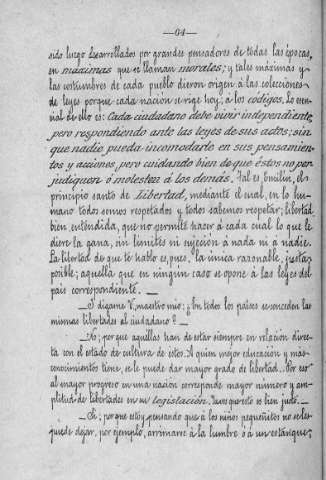 —64—
sido luego desarrollados por grandes pensadores de todas las épocas,
en máximas que se llaman morales; y tales máximas y
las costumbres de cada pueblo dieron origen á las colecciones
de leyes porque cada nación se rige hoy, á los códigos. Lo esen-
cial de ello es: Cada ciudadano debe vivir independiente,
pero respondiendo ante las leyes de sus actos; sin
que nadie pueda incomodarlo en sus pensamien-
tos y acciones, pero cuidando bien de que éstos no per-
judiquen ó molesten á los demás. Tal es, Emilín, el
principio santo de Libertad, mediante el cual, en lo hu-
mano todos somos respetados y todos sabemos respetar; libertad
bien entendida, que no permite hacer á cada cual lo que le
diere la gana, sin límites ni sujeción á nada ni á nadie.
La libertad de que te hablo es, pues, la única razonable, justa y
posible; aquella que en ningún caso se opone á las leyes del
país correspondiente. —
—Y dígame V, maestro mío: ¿En todos los países se conceden las
mismas libertades al ciudadano? —
—No; porque aquellas han de estar siempre en relación direc-
ta con el estado de cultura de estos. A quien mejor educación y más
conocimientos tiene, se le puede dar mayor grado de libertad. Por eso
al mayor progreso en una nación corresponde mayor número y am-
plitud de libertades en su legislación,
—Sí; porque estoy pensando que á los niños pequeñitos no se les
puede dejar, por ejemplo, arrimarse á la lumbre ó á un estanque;